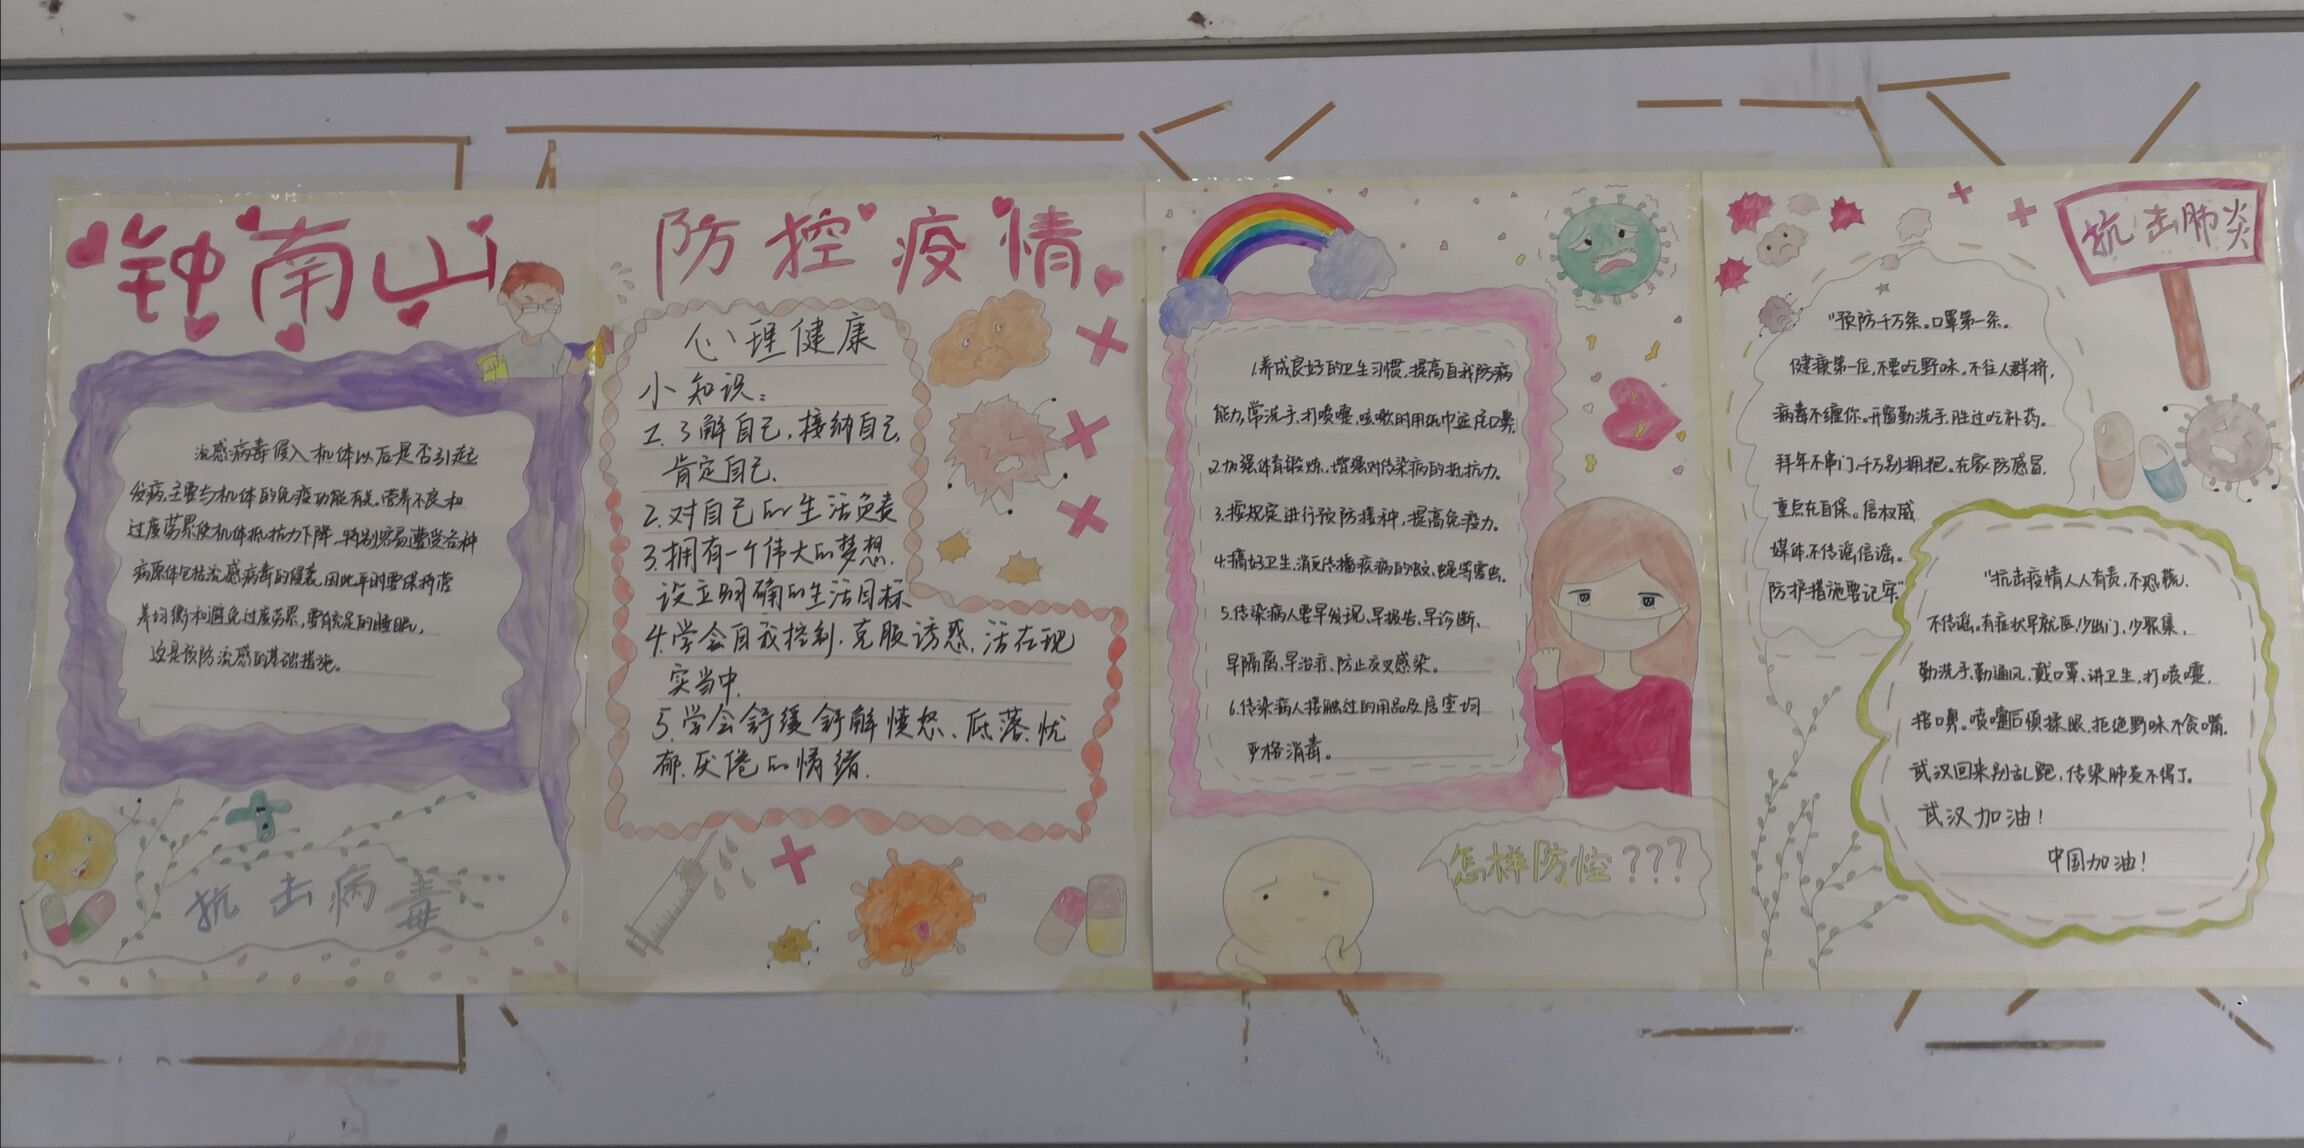 钟南山
流感病毒侵入机体以后是否引起
发病，主要与机体的免疫功能有关。营养不良和
过度劳累使机体抵抗力下降，特别容易遭受各种
病原体包括流感病毒的侵袭，因此平时要保持营
养均衡和避免过度劳累，要有充足的睡眠，
这是预防流感的基础措施。
抗击病毒
防控疫情
心理健康
小知识：
1.了解自己，接纳自己
肯定自己.
2.对自己的生活负责
3.拥有一个伟大的梦想.
设立明确的生活目标
4.学会自我控制.克服诱惑，活在现
实当中.
5.学会舒缓舒解愤怒、底落、忧
郁.厌倦的情绪.
1.养成良好的卫生习惯，提高自我防病
能力，常洗手、打喷嚏、咳嗽时用纸巾遮住口鼻.
2.加强体育锻炼，增强对传染病的抵抗力。
3.按规定进行预防接种，提高免疫力。
4.搞好卫生，消灭传播疾病的蚊、蝇等害虫。
5.传染病人要早发现、早报告、早诊断、
早隔离、早治疗、防止交叉感染。
6.传染病人接触过的用品及居室均
严格消毒。
怎样防控???
抗击肺炎
"预防千万条。口罩第一条。
健康第一位，不要吃野味。不往人群挤，
病毒不缠你。开窗勤洗手，胜过吃补药。
拜年不串门，千万别拥抱。在家防感冒，
重点在自保。信权威
媒体不传谣，信谣。
防护措施要记牢"
"抗击疫情人人有责，不恐慌，
不传谣。有症状早就医，少出门，少聚集，
勤洗手，勤通风，戴口罩、讲卫生，打喷嚏，
捂口鼻。喷嚏后慎揉眼，拒绝野味不贪嘴.
武汉回来别乱跑，传染肺炎不得了。
武汉加油！
中国加油！